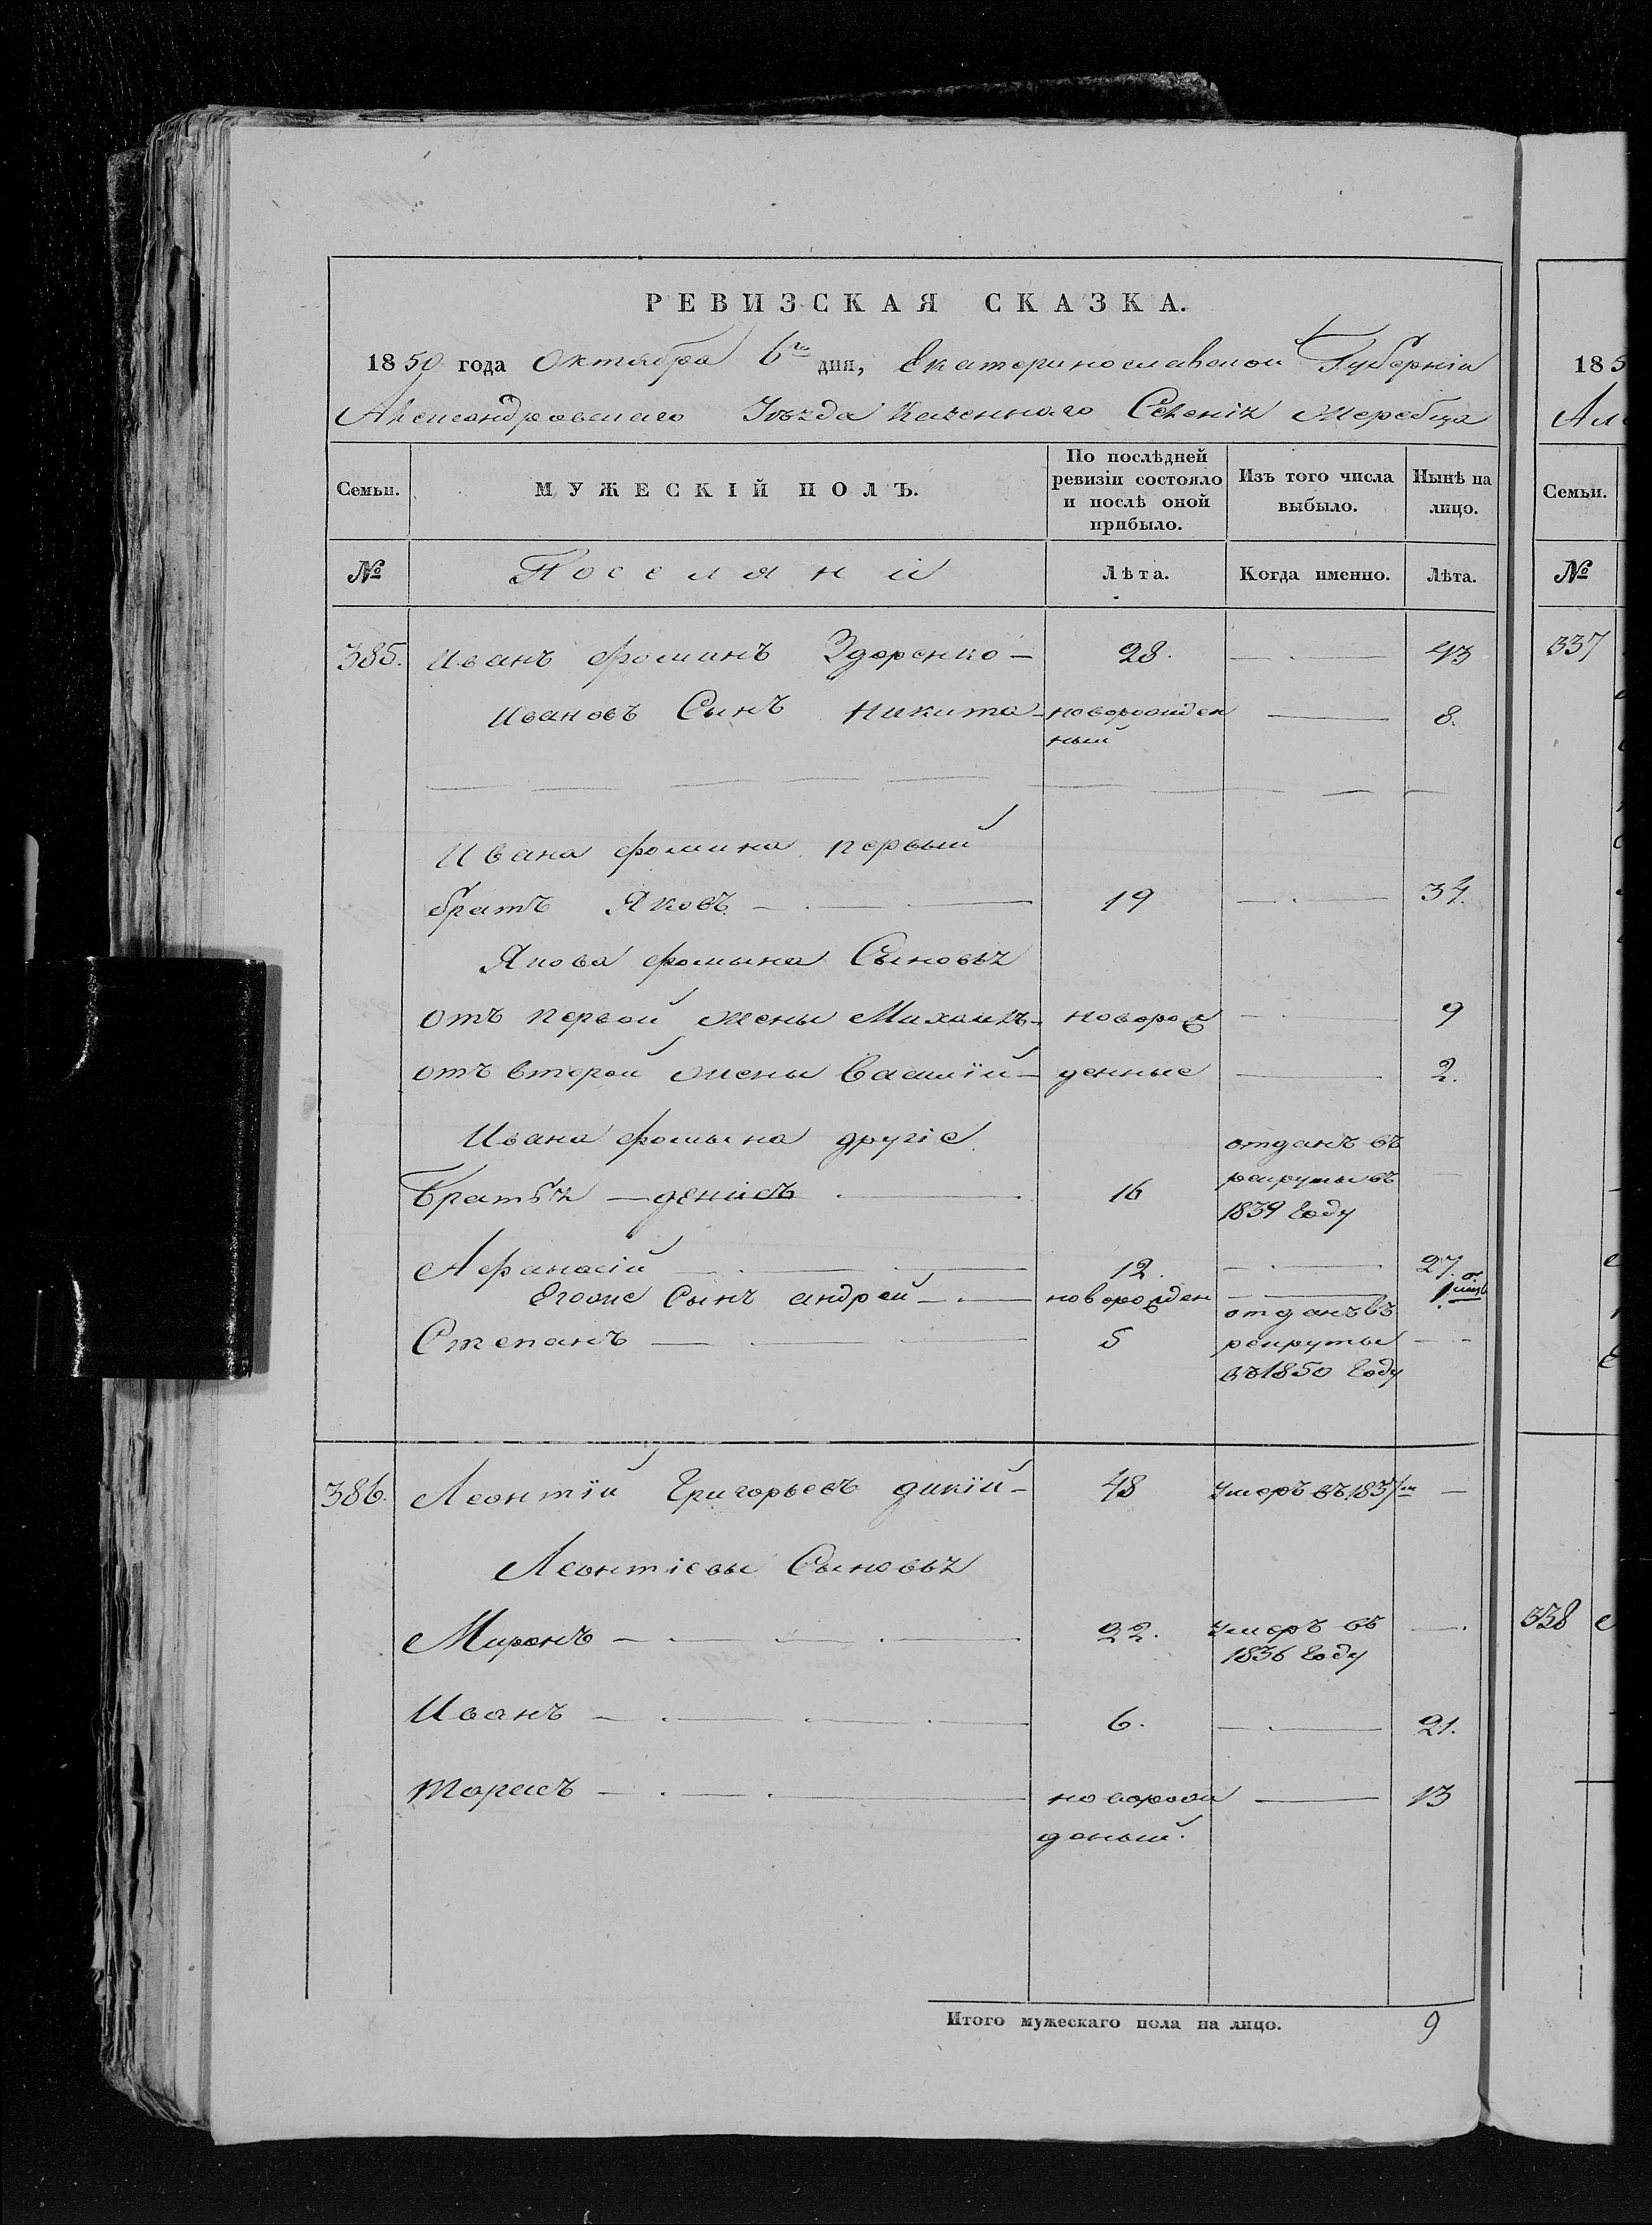 РЕВИЗСКАЯ СКАЗКА.
1850 года Октября 6го дня, Екатеринославской Губерніи
Александровскаго Уѣзда Казеннаго Селенія Жеребца
Семьи. МУЖЕСКІЙ ПОЛЪ. По послѣдней ревизіи состояло и послѣ оной прибыло. Изъ того числа выбыло. Нынѣ на лицо.
№ Поселяни Лѣта. Когда именно. Лѣта.
385. Иванъ Фоминъ Здоренко — 28. — 43
Ивановъ Сынъ Никита — новорожден — 8.
ный
Ивана Фомина первый
братъ Яковъ — 19 — 34.
Якова Фомина Сыновья
отъ первой жены Михаилъ — новорож — 9
отъ второй жены Василій — денные — 2.
Ивана Фомина другіе отданъ въ
Братья — Денисъ — 16 рекруты въ —
1839 году
Афанасій — 12. — 27.
Егоже Сынъ Андрей — новорожден —
отданъ въ
Степанъ — 5 рекруты —
въ 1850 году
386. Леонтій Григорьевъ Дикій — 48 умеръ въ 1837м —
Леонтіевы Сыновья
Миронъ — 22. умеръ въ —
1836 году
Иванъ — 6. — 21.
Тарасъ — новорож — 13
деный.
Итого мужескаго пола на лицо. 9
185
Але
Семьи.
№
337
338